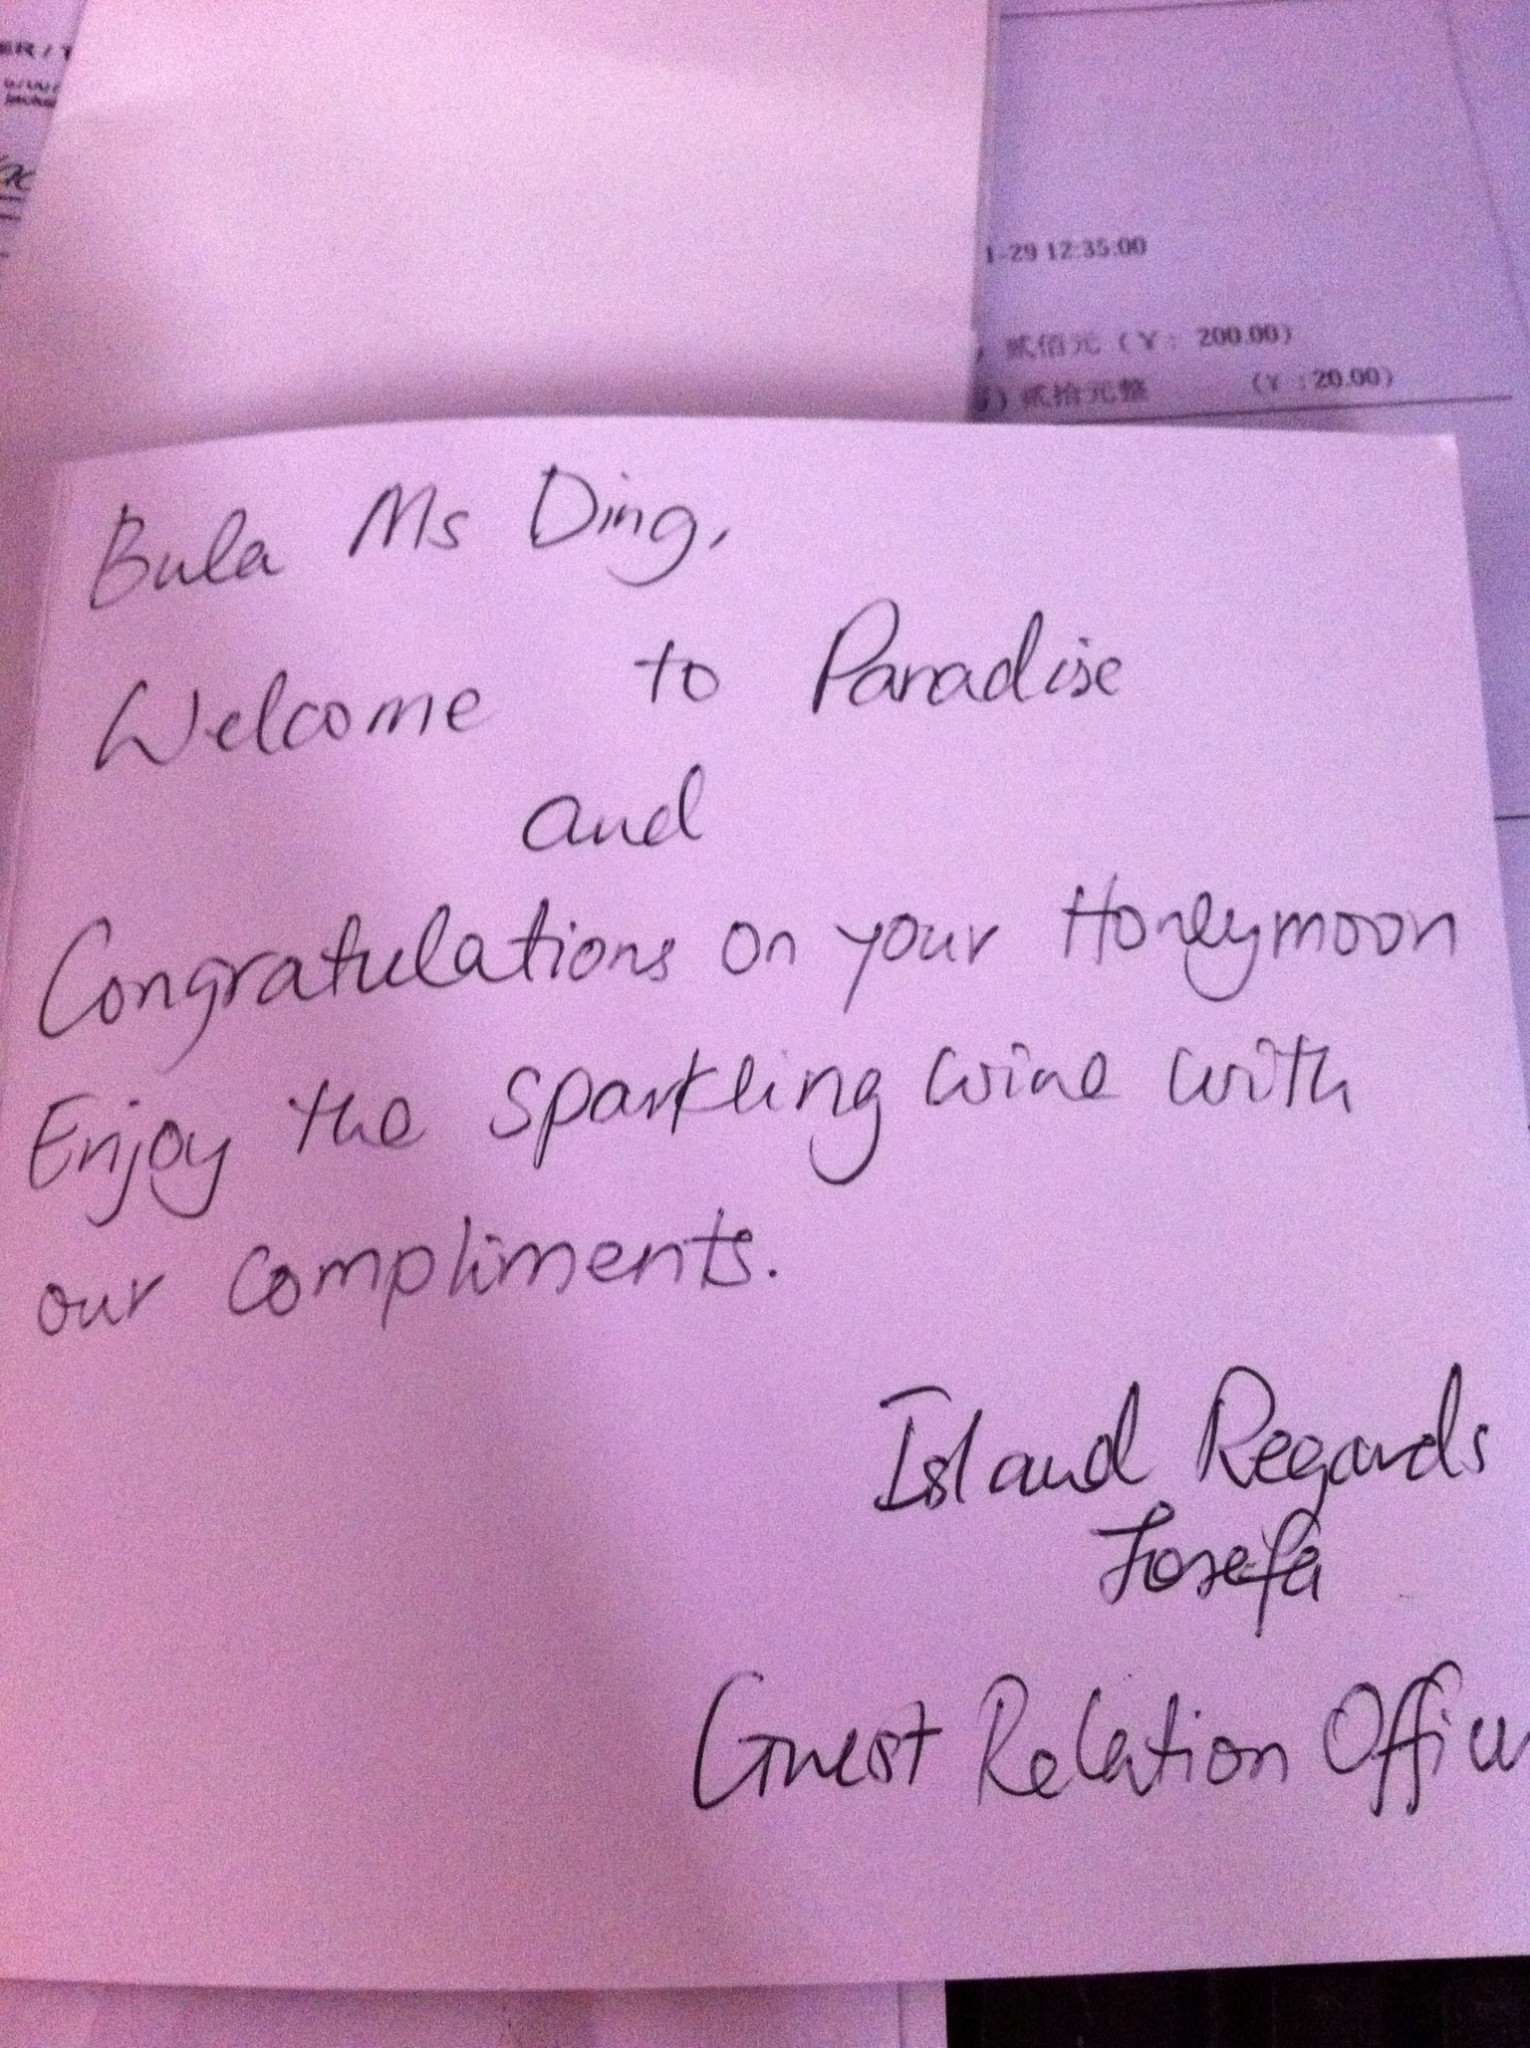 1-29 12:35:00
贰佰元 (¥: 200.00)
贰拾元整 (¥:20.00)
Bula Ms Ding,
Welcome to Paradise
and
Congratulations on your Honeymoon
Enjoy the sparkling wine with
our compliments.
Island Regards
Josefa
Guest Relation Officer